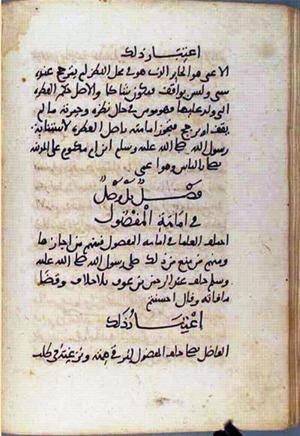 اعتبار ذلك
الاعمى هو الحاير الذي هو في محل النظر لم يترجح عنده
شي وليس بواقف فيكون شاكا والاصل حكم الفطرة
التي ولد عليها فهو مومن في حال نظره وحيرته ما لم
يقف او يرجح فيجوز امامته باصل الفطرة لاستنابة
رسول الله صلى الله عليه وسلم ابن ام مكتوم على المدينة
يصلي بالناس وهو اعمى
فصل بل وصل
في امامة المفضول
اختلف العلما في امامة المفضول فمنهم من اجازها
ومنهم من منع من ذلك صلى رسول الله صلى الله عليه
وسلم خلف عبد الرحمن بن عوف بلا خلاف وقضا
ما فاته وقال احسنتم
اعتبار ذلك
الفاضل يصلي خلف المفضول ليرقى همته ويرغبه في طلب